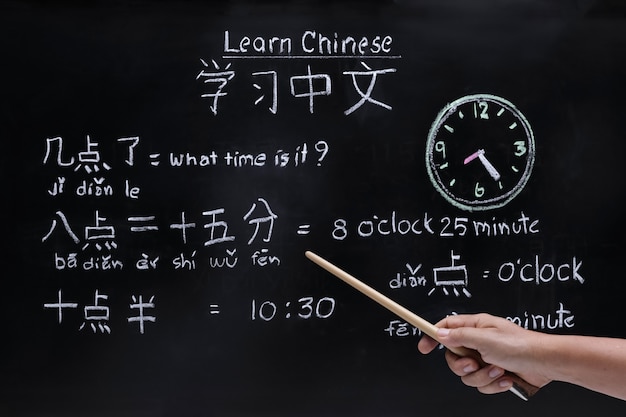 Learn Chinese
学习中文
12
3
6
9
几点了 = what time is it?
jǐ diǎn le
八点二十五分 = 8 o'clock 25 minute
bā diǎn èr shí wǔ fēn
diǎn 点 = o'clock
十点半 = 10:30
fēn minute